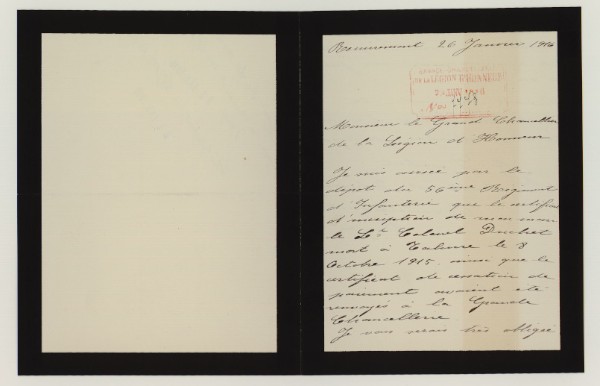 26 Janvier 1916
LEGION D'HONNEUR
Monsieur le Grand Chancelier
de la Légion d'Honneur
Je suis avisée par le
dépôt du 56ème Régiment
d'Infanterie que le certificat
d'inscription de mon mari
le Lt Colonel
mort à Tahure le 8
Octobre 1915, ainsi que le
certificat de cessation de
paiement avaient été
renvoyés à la Grande
Chancellerie
Je vous serais très obligée